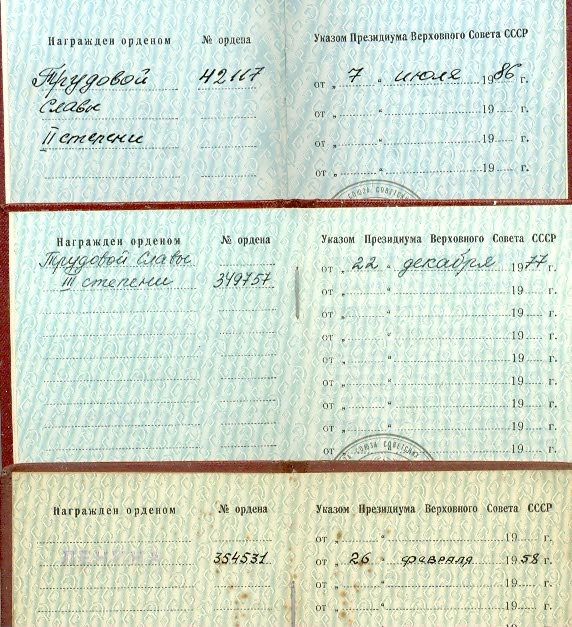 Награжден орденом № ордена Указом Президиума Верховного Совета СССР
Трудовой 42117 от „ 7 “ июля 1986 г.
Славы от „ “ 19 г.
II степени от „ “ 19 г.
от „ “ 19 г.
СОЮЗА СОВЕТСК
Награжден орденом № ордена Указом Президиума Верховного Совета СССР
Трудовой Славы от „ 22 “ декабря 1977 г.
III степени 349757 от „ “ 19 г.
от „ “ 19 г.
от „ “ 19 г.
от „ “ 19 г.
от „ “ 19 г.
от „ “ 19 г.
от „ “ 19 г.
от „ “ 19 г.
СОЮЗА СОВЕТСКИХ
Награжден орденом № ордена Указом Президиума Верховного Совета СССР
от „ “ 19 г.
ЛЕНИНА 354531 от „ 26 “ февраля 1958 г.
от „ “ 19 г.
от „ “ 19 г.
19